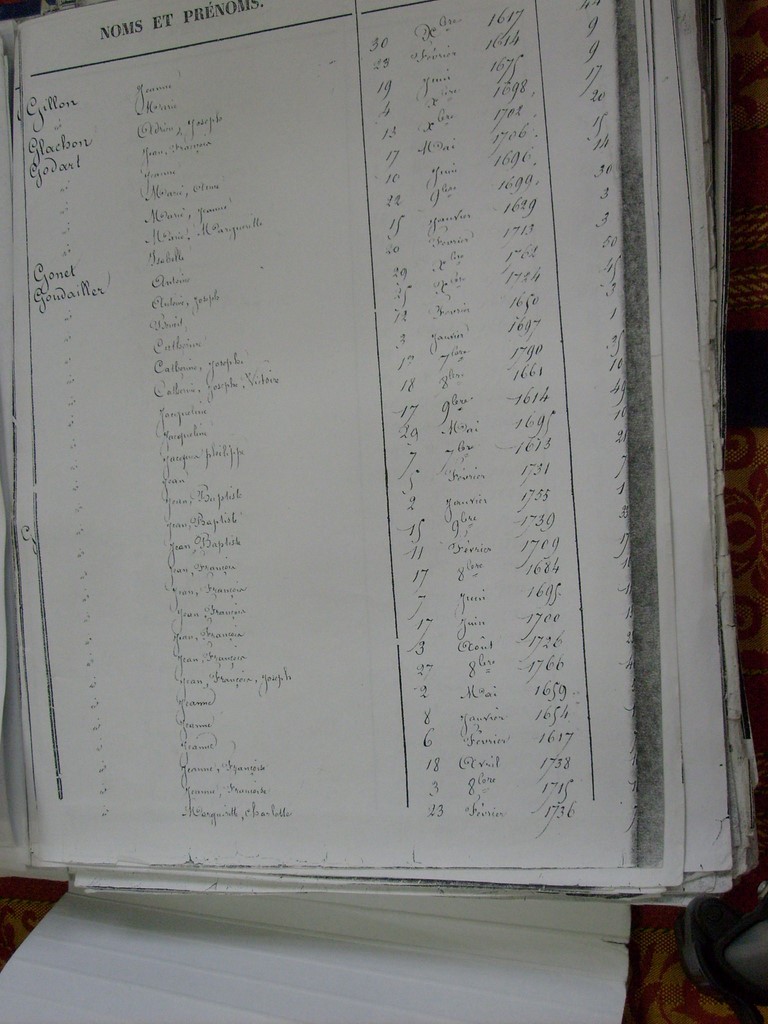 NOMS ET PRÉNOMS.
Gillon Jeanne 30 Xbre 1617
" Marie 23 Février 1614 9
Glachon Adrien, Joseph 19 Juin 1675 9
Godart Jean, François 4 Xbre 1698 17
" Jeanne 12 Xbre 1702 20
" Marie, Anne 17 Mai 1706 15
" Marie, Jeanne 10 Juin 1696 14
" Marie, Marguerite 22 9bre 1699 30
" Isabelle 15 Janvier 1629 3
Gonet Antoine 20 Février 1713 3
Goudailler Antoine, Joseph 29 Xbre 1762 50
" Benoit 25 Xbre 1724 45
" Catherine 12 Février 1650 3
" Catherine, Josephe 3 Janvier 1697 1
" Catherine, Josephe, Victoire 17 7bre 1790 35
" Jacqueline 18 8bre 1661 10
" Jacqueline 17 9bre 1614 49
" Jacques philippe 29 Mai 1695 16
" Jean 7 7bre 1613 21
" Jean, Baptiste 5 Février 1731 7
" Jean, Baptiste 2 Janvier 1755 1
" Jean, Baptiste 15 9bre 1739
" Jean, François 11 Février 1709
" Jean, François 17 8bre 1684
" Jean, François 7 Juin 1695
" Jean, François 17 Juin 1700
" Jean, François 3 Août 1726
" Jean, François, Joseph 27 8bre 1766
" Jeanne 2 Mai 1659
" Jeanne 8 Janvier 1654
" Jeanne 6 Février 1617
" Jeanne, Françoise 18 Avril 1738
" Jeanne, Françoise 3 8bre 1715
" Marguerite, Charlotte 23 Février 1736